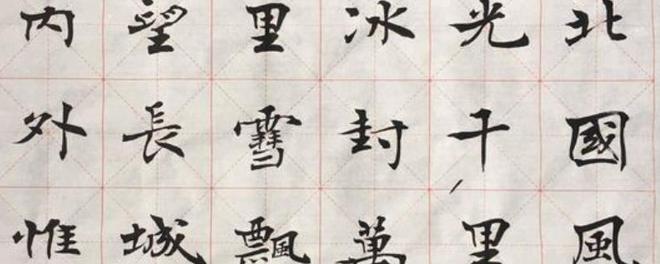 北國風
光千里
冰封萬
里雪飄
望長城
内外惟